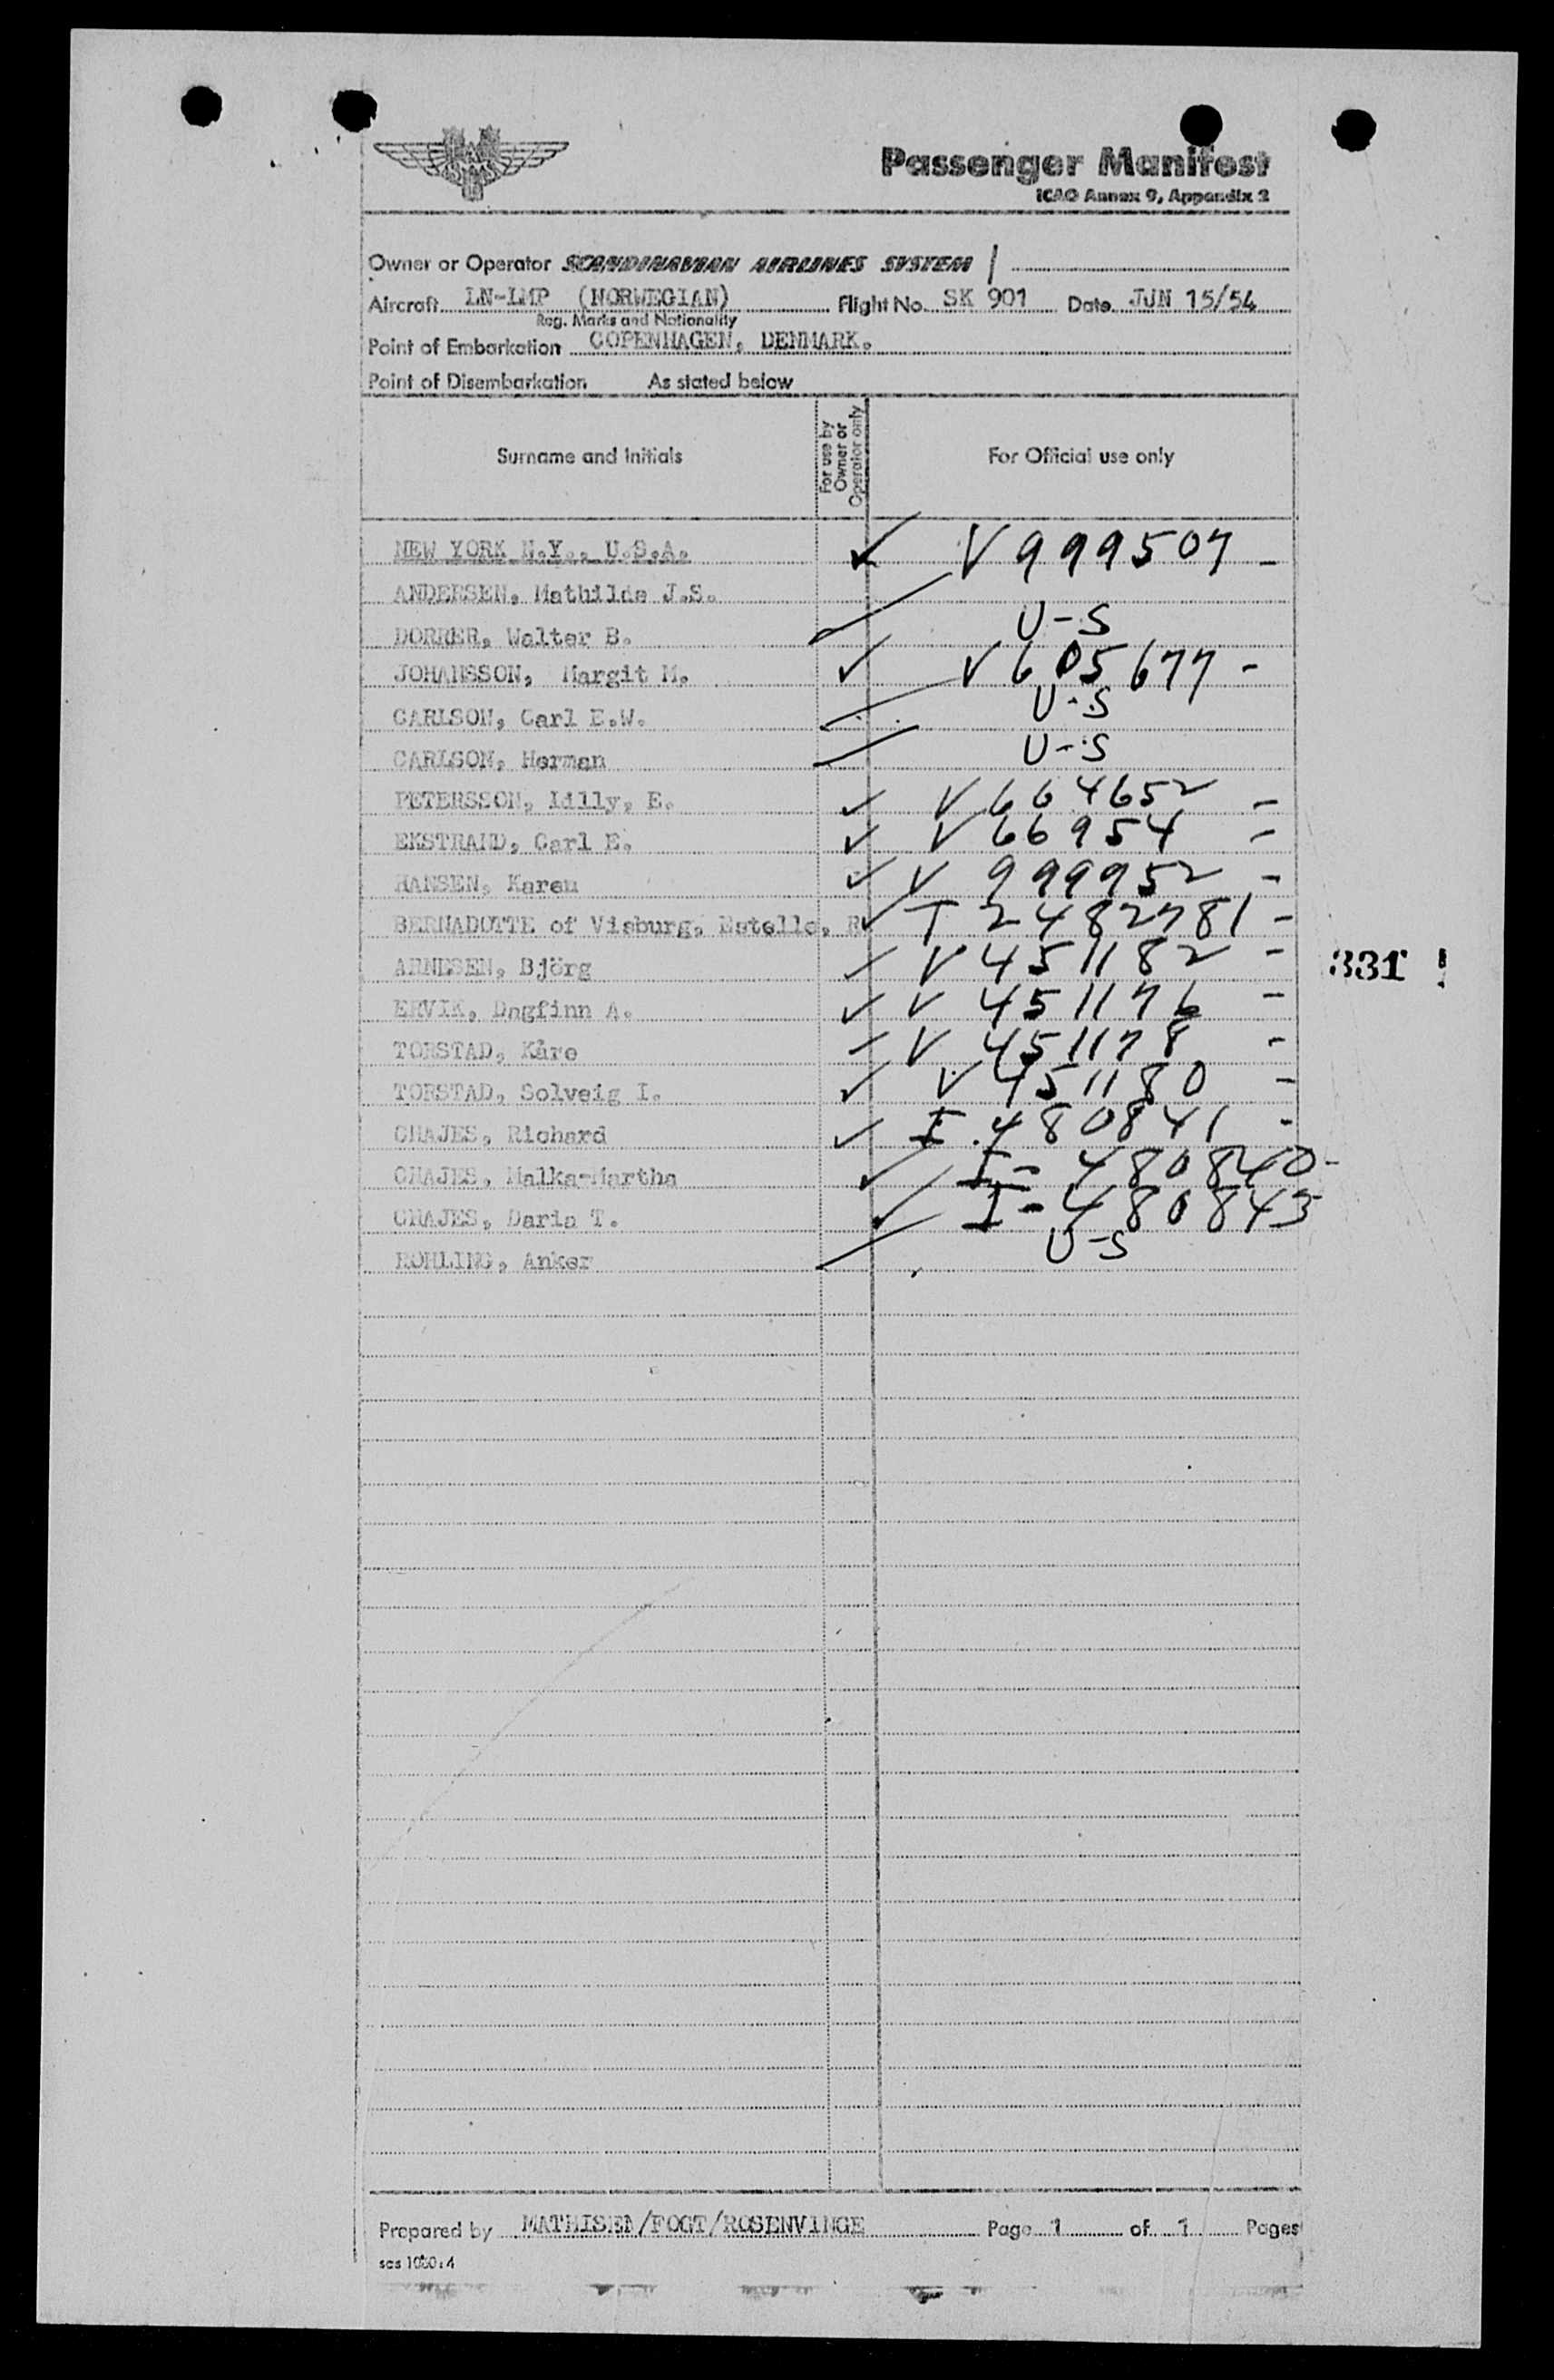 SAS
Passenger Manifest
ICAO Annex 9, Appendix 2
Owner or Operator SCANDINAVIAN AIRLINES SYSTEM /
Aircraft LN-LMP (NORWEGIAN) Flight No. SK 901 Date JUN 15/54
Reg. Marks and Nationality
Point of Embarkation COPENHAGEN, DENMARK.
Point of Disembarkation As stated below
Surname and Initials For use by Owner or Operator only For Official use only
NEW YORK N.Y., U.S.A. ✓ V 999507 -
ANDERSEN, Mathilde J.S.
DORRER, Walter B. U-S
JOHANSSON, Margit M. ✓ V 605677 -
CARLSON, Carl E.W. U-S
CARLSON, Herman U-S
PETERSSON, Lilly, E. ✓ V 664652 -
EKSTRAND, Carl E. ✓ V 66954 -
HANSEN, Karen ✓ V 999952 -
BERNADOTTE of Visburg, Estelle, R ✓ T 2482781 -
ARNESEN, Björg ✓ V 451182 -
ERVIK, Dagfinn A. ✓ V 451176 -
TORSTAD, Kåre ✓ V 451178 -
TORSTAD, Solveig I. ✓ V 451180 -
CHAJES, Richard ✓ I 480841 -
CHAJES, Malka-Martha ✓ I - 480840 -
CHAJES, Daria T. ✓ I - 480843
ROHLING, Anker U-S
331
Prepared by MATHISEN/FOGT/ROSENVINGE Page 1 of 1 Pages